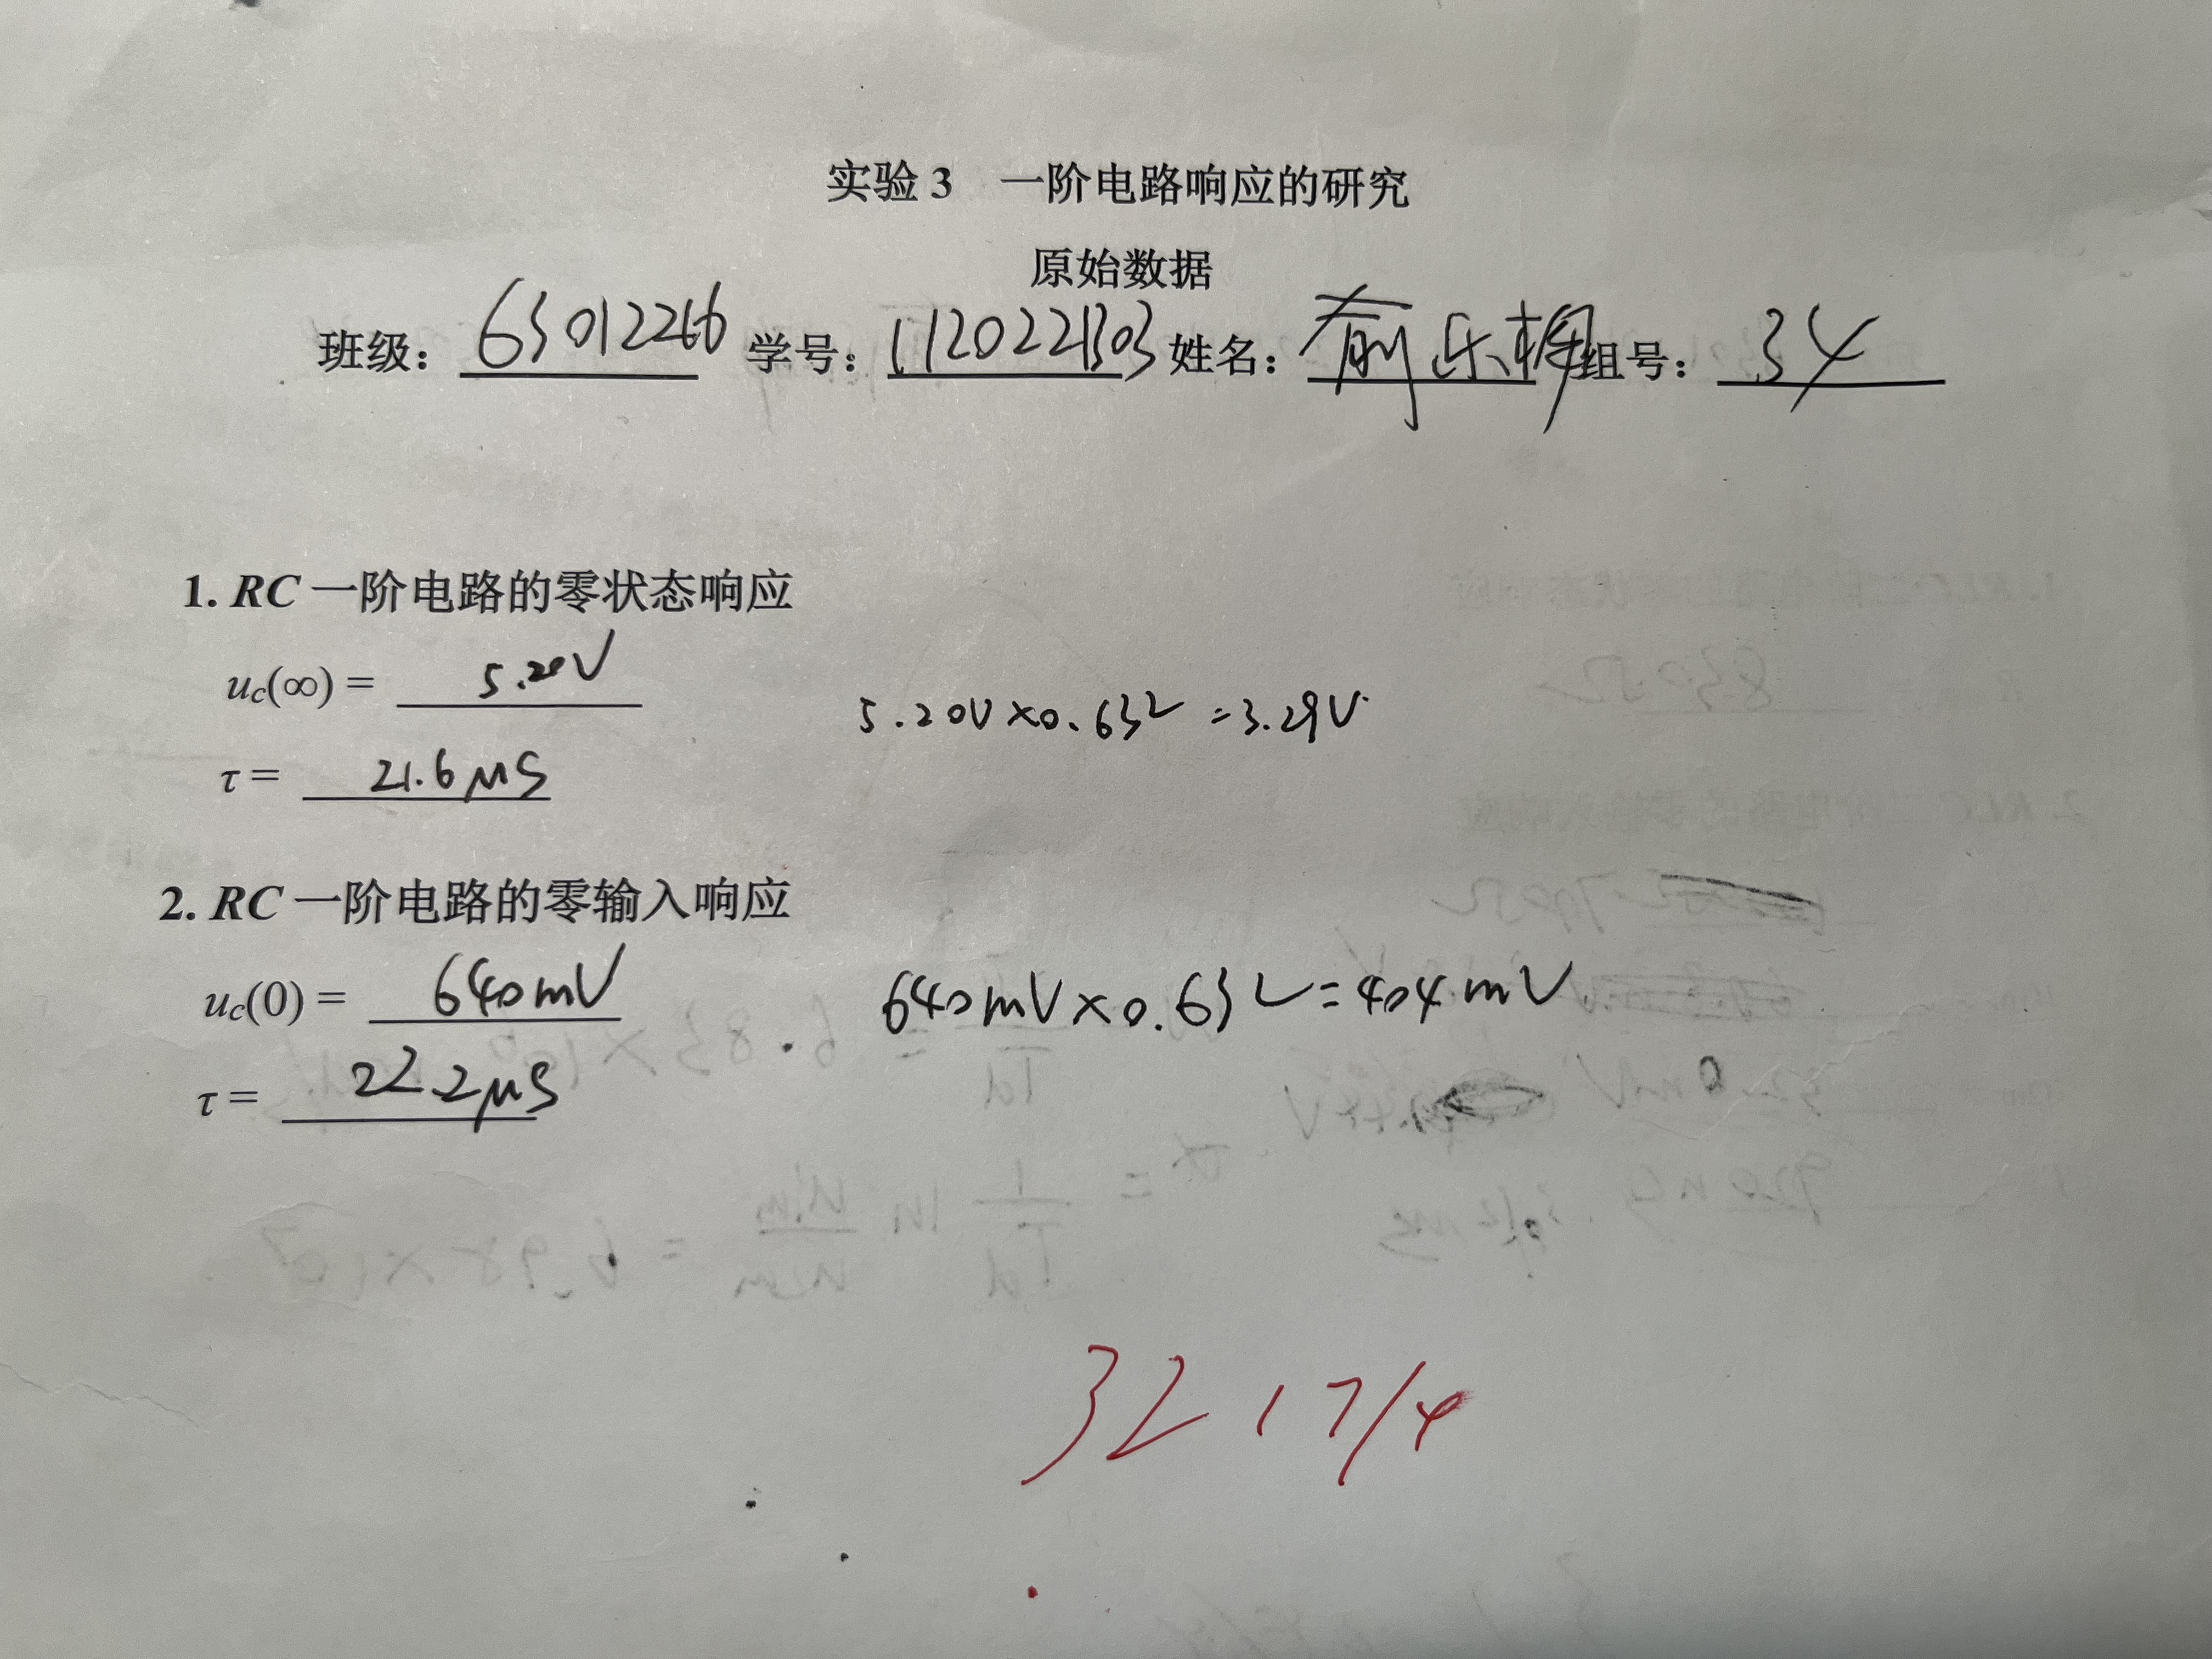 实验 3 一阶电路响应的研究
原始数据
班级： 63012266 学号： 1120221303 姓名： 俞乐桐 组号： 34
1. RC 一阶电路的零状态响应
uc(∞) = 5.20V
5.20V×0.632=3.29V
τ = 21.6μS
2. RC 一阶电路的零输入响应
uc(0) = 640mV
640mV×0.632=404mV
τ = 22.2μS
32 17/4